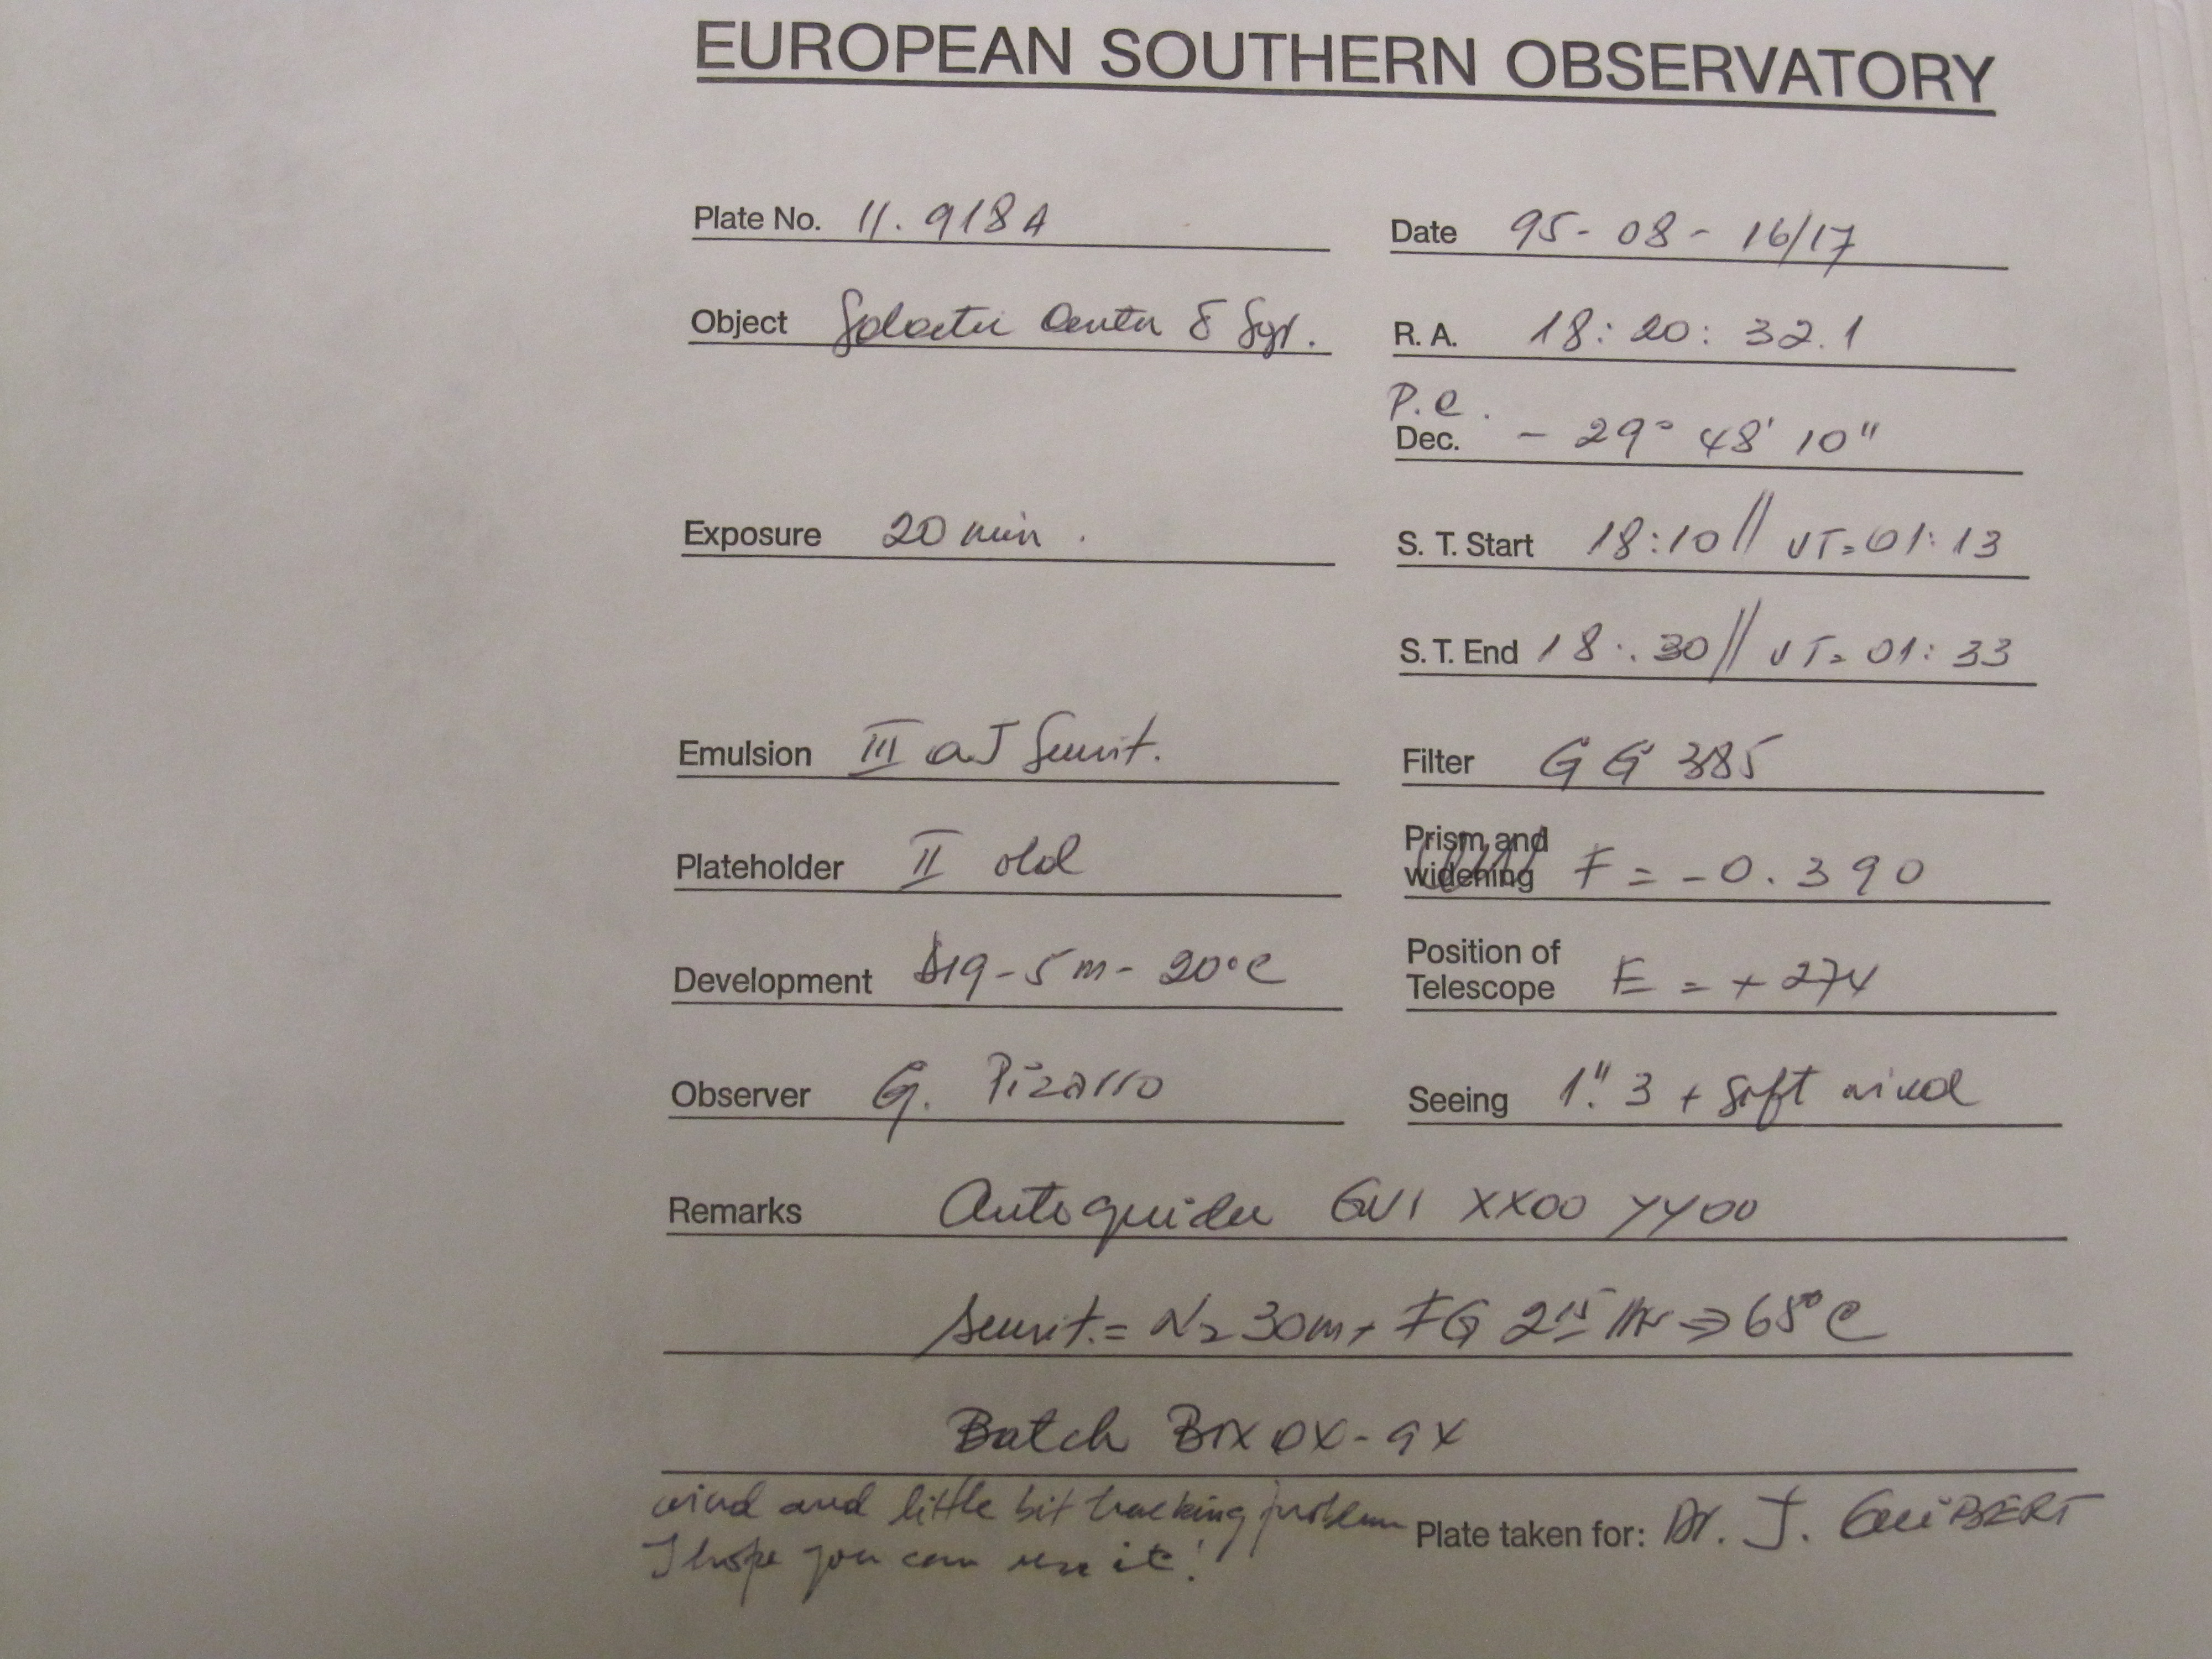 EUROPEAN SOUTHERN OBSERVATORY
Plate No. 11.918A Date 95-08-16/17
Object Galactic Center δ Sgr. R. A. 18:20:32.1
P.C.
Dec. -29° 48' 10"
Exposure 20 min. S. T. Start 18:10 // UT=01:13
S. T. End 18:30 // UT=01:33
Emulsion III aJ Sensit. Filter GG 385
Plateholder II old Prism and widening F = -0.390
Development D19-5m-20°C Position of Telescope E = +274
Observer G. Pizarro Seeing 1".3 + soft wind
Remarks Autoguider GV1 XX00 YY00
Sensit.= N2 30m + FG 2 15 Hr ⇒ 65°C
Batch
wind and little bit tracking problem Plate taken for: Dr. J. GUIBERT
I hope you can use it!